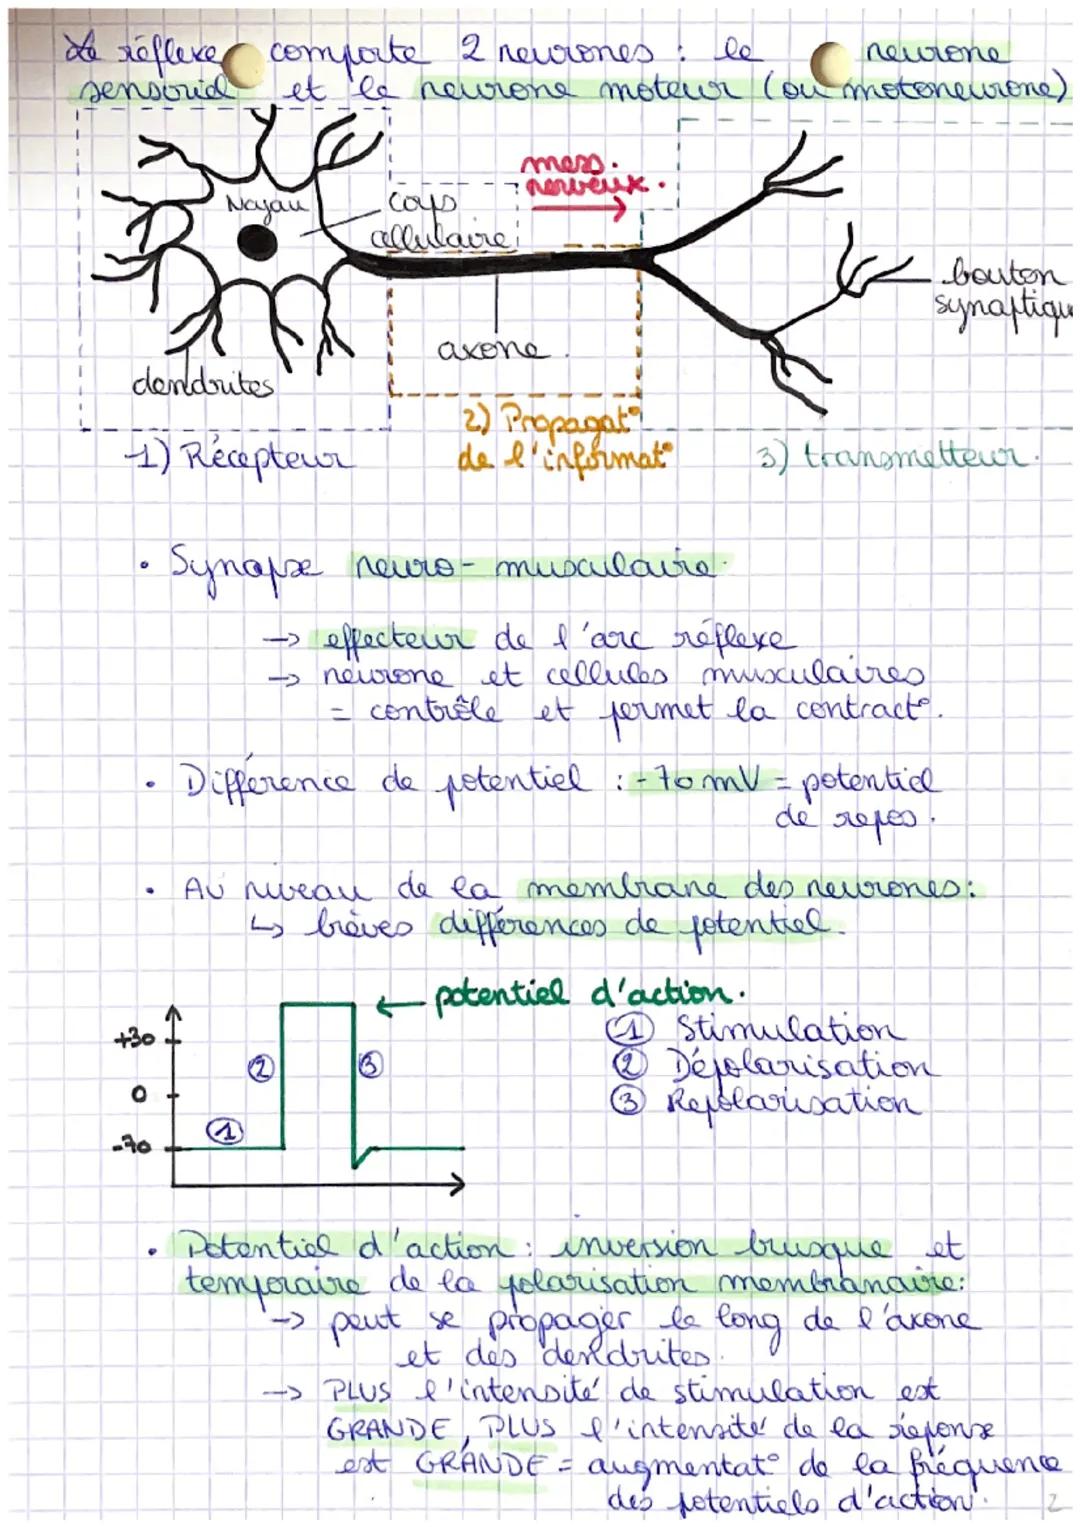 Le réflexe comporte 2 neurones : le neurone
sensoriel et le neurone moteur (ou motoneurone)
mess.
nerveux.
Noyau
corps
cellulaire
bouton
synaptique
axone.
dendrites
2) Propagat°
1) Récepteur
de l'informat°
3) transmetteur.
• Synapse neuro-musculaire.
→ effecteur de l'arc réflexe
→ neurone et cellules musculaires
= contrôle et permet la contract°.
• Différence de potentiel : -70 mV = potentiel
de repos.
• Au niveau de la membrane des neurones:
↳ brèves différences de potentiel.
← potentiel d'action.
+30
0
-70
1
2
3
① Stimulation
② Dépolarisation
③ Repolarisation
• Potentiel d'action : inversion brusque et
temporaire de la polarisation membranaire:
→ peut se propager le long de l'axone
et des dendrites.
→ PLUS l'intensité de stimulation est
GRANDE, PLUS l'intensité de la réponse
est GRANDE = augmentat° de la fréquence
des potentiels d'action.
2